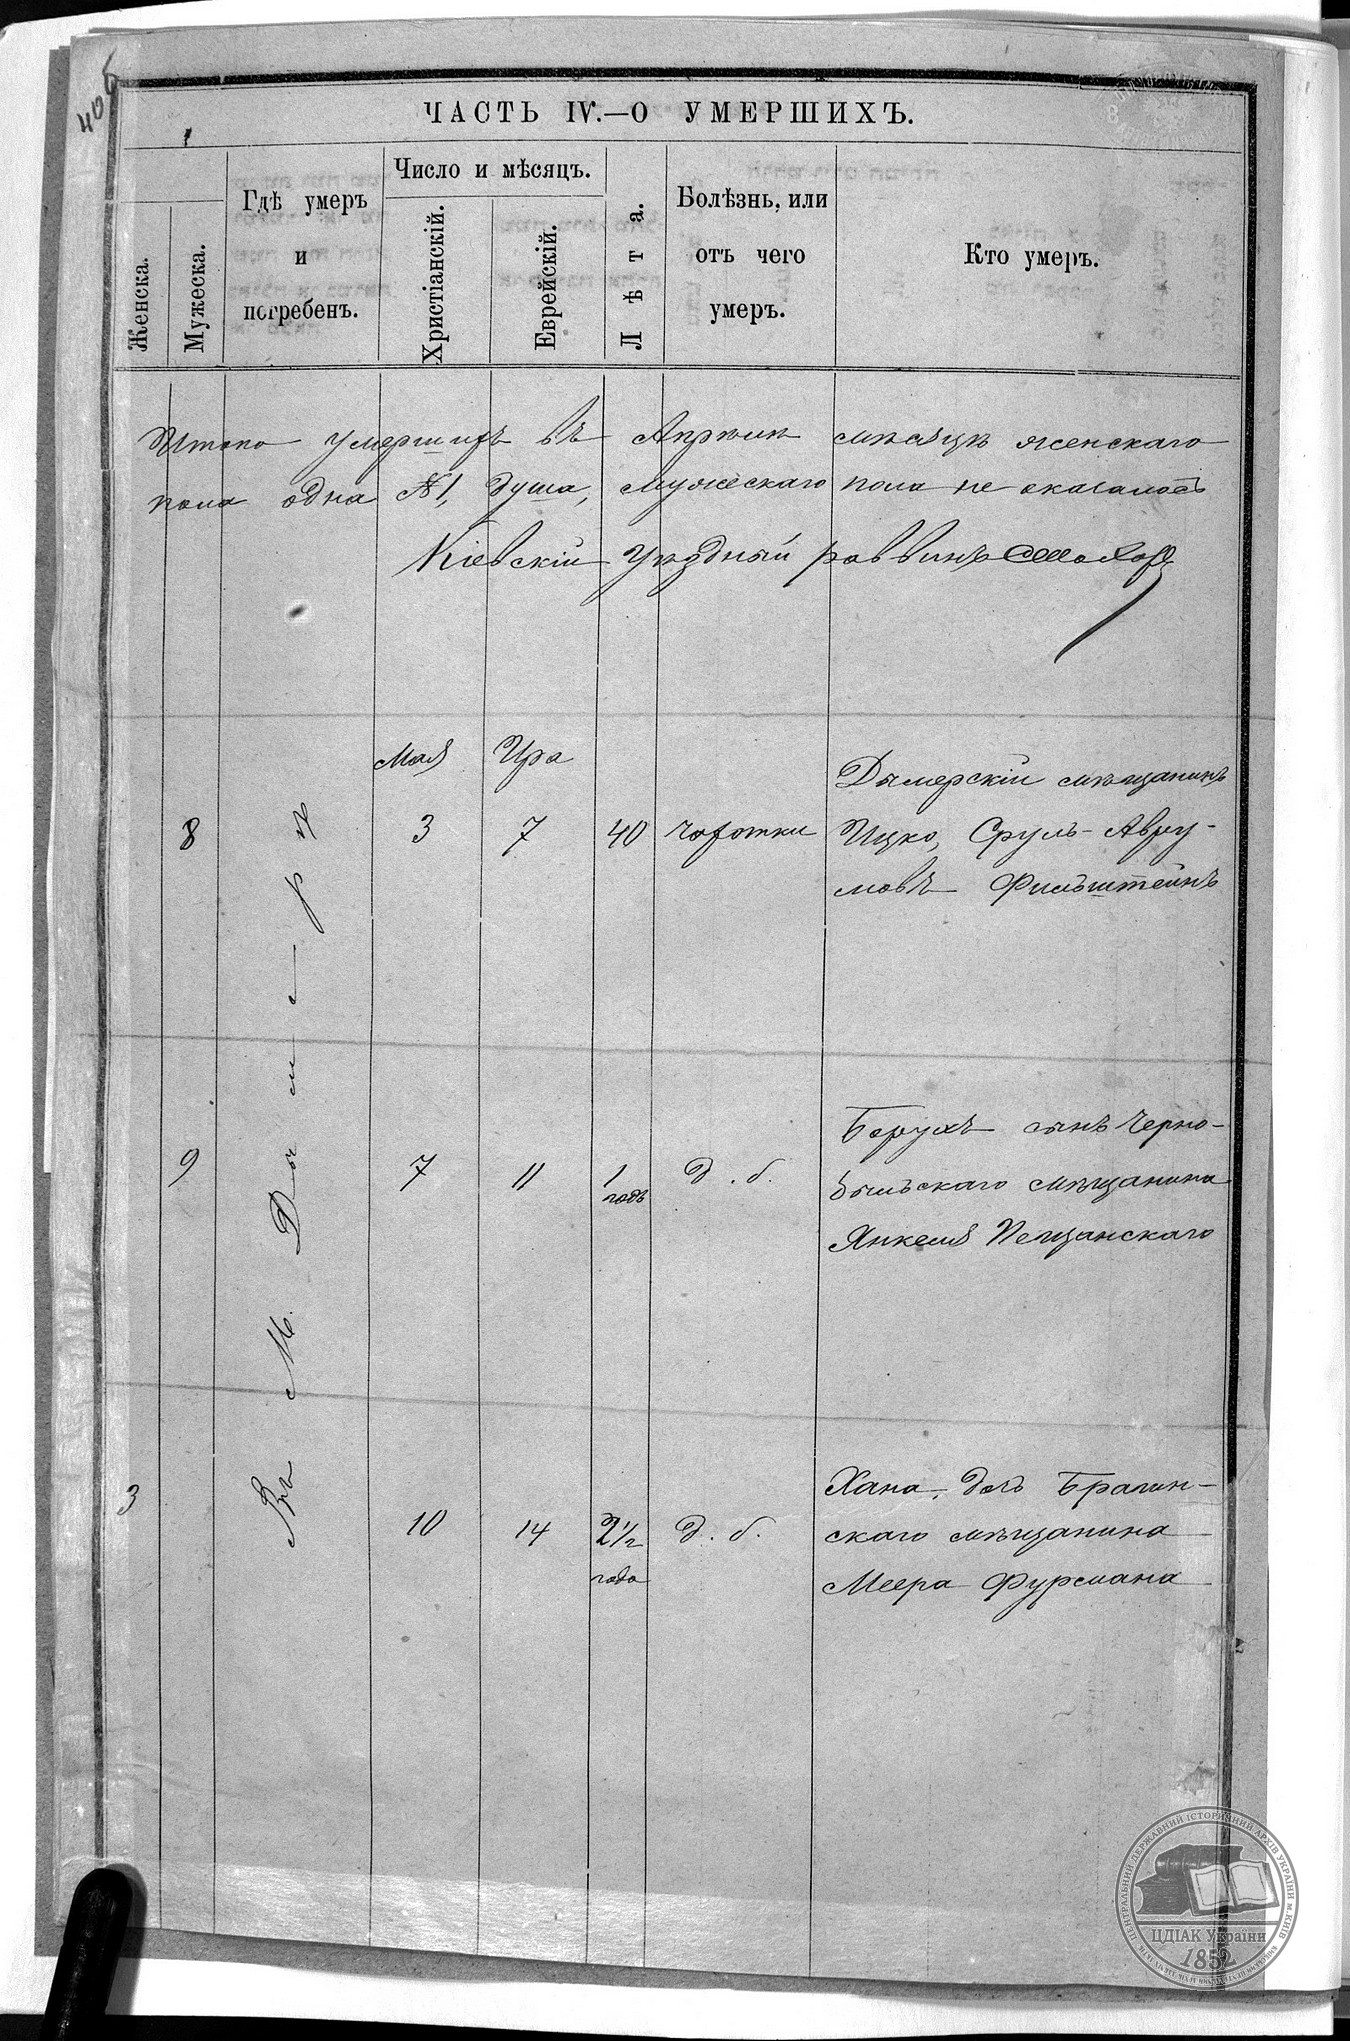 406
ЧАСТЬ IV.—О УМЕРШИХЪ.
Женска.
Мужеска.
Гдѣ умеръ
и
погребенъ.
Число и мѣсяцъ.
Христіанскій.
Еврейскій.
Лѣта.
Болѣзнь, или
отъ чего
умеръ.
Кто умеръ.
Итого умершихъ въ Апрѣлѣ мѣсяцѣ женскаго
пола одна №1, душа, мужескаго пола не оказалось
Кіевскій Уѣздный раввинъ
Въ М. Дымерѣ
Мая Ира
8 3 7 40 чахотки
Дымерскій мѣщанинъ
Ицко, Сруль-Авру-
мовъ Фильштейнъ
9 7 11 1 годъ д. б.
Борухъ сынъ Черно-
быльскаго мѣщанина
Янкеля Пещанскаго
3 10 14 2½ года д. б.
Хана, дочь Брагин-
скаго мѣщанина
Меера Фурмана
ЦЕНТРАЛЬНИЙ ДЕРЖАВНИЙ ІСТОРИЧНИЙ АРХІВ УКРАЇНИ м. КИЇВ
ЦДІАК України
1852